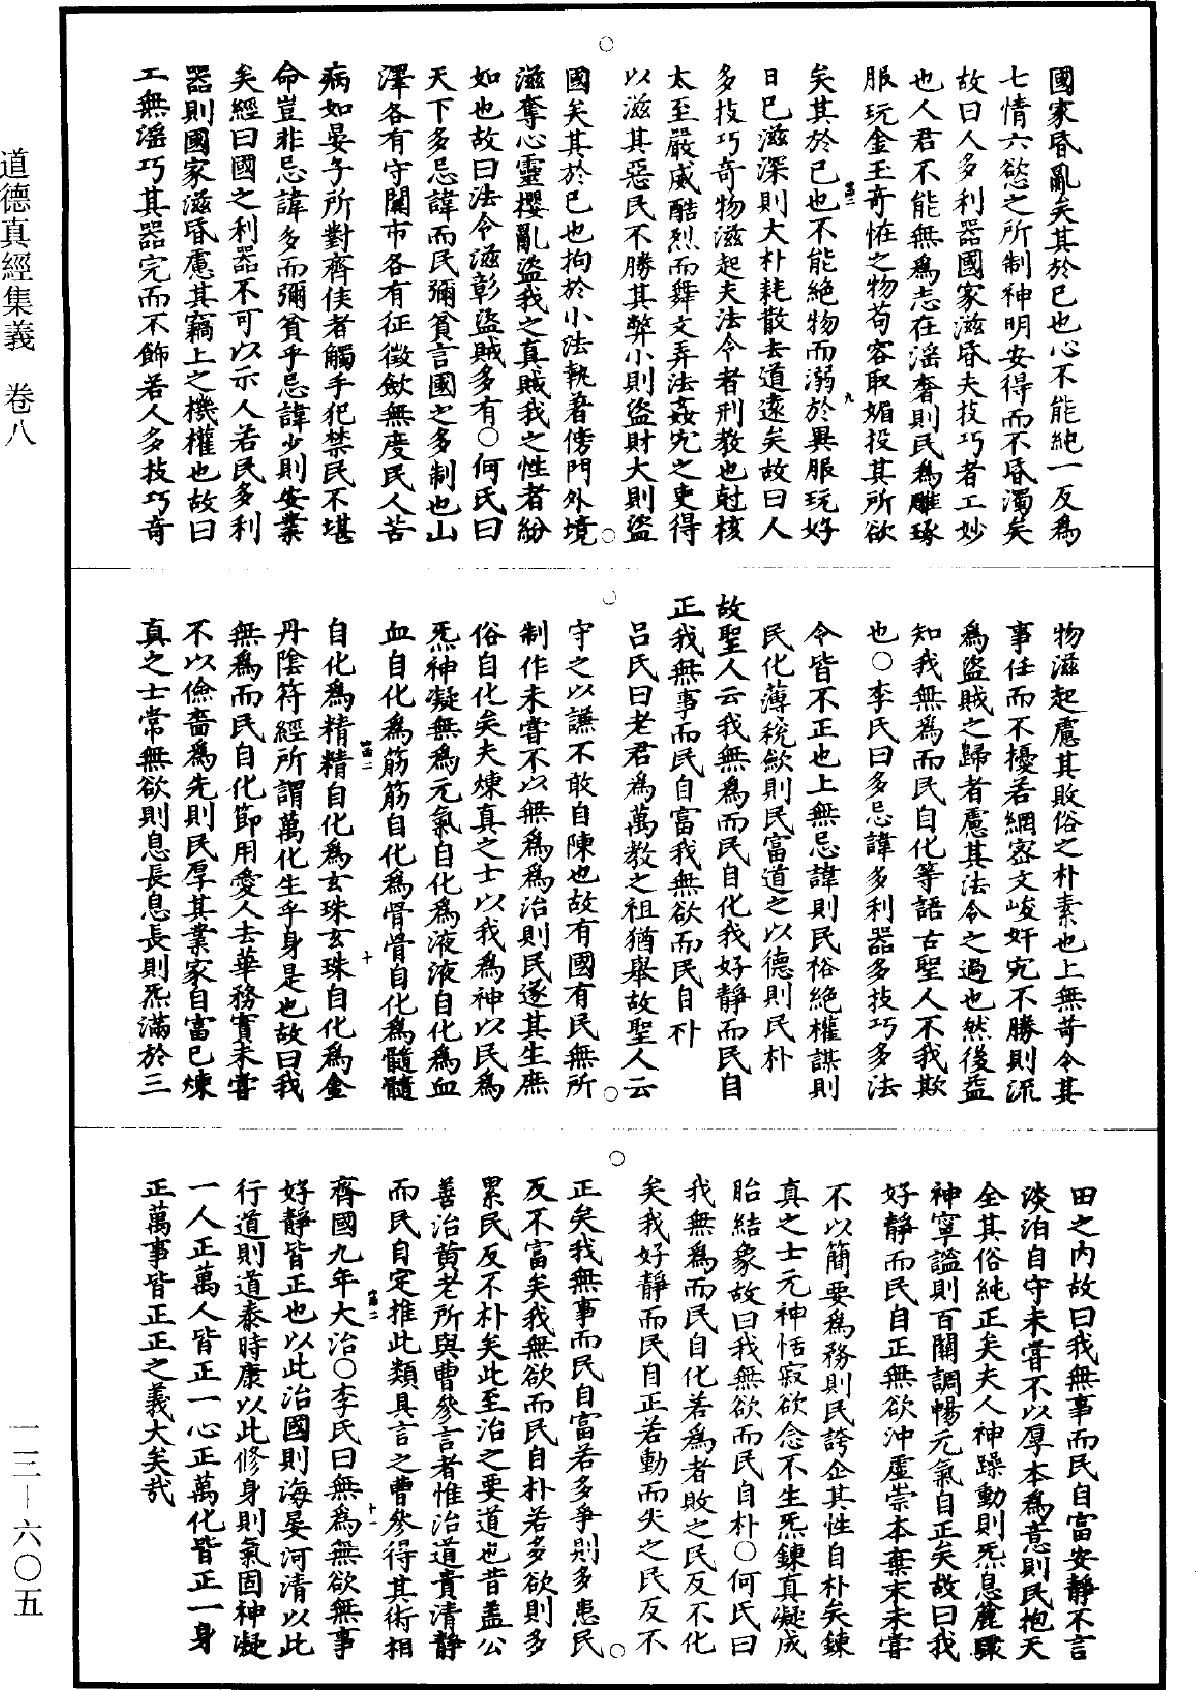 國家昏亂矣其於己也心不能純一反為
七情六慾之所制神明安得而不昏濁矣
故曰人多利器國家滋昏夫技巧者工妙
也人君不能無為志在滛奢則民為雕琢
服玩金玉竒恠之物苟容取媚投其所欲
矣其於己也不能絶物而溺於異服玩好
日已滋深則大朴耗散去道遠矣故曰人
多技巧竒物滋起夫法令者刑教也尅核
太至嚴威酷烈而舞文弄法姦宄之吏得
以滋其惡民不勝其弊小則盜財大則盜
國矣其於己也拘於小法執著傍門外境
滋奪心靈攖亂盜我之真賊我之性者紛
如也故曰法令滋彰盜賊多有○何氏曰
天下多忌諱而民彌貧言國之多制也山
澤各有守關市各有征徵歛無度民人苦
病如晏子所對齊侯者觸手犯禁民不堪
命豈非忌諱多而彌貧乎忌諱少則安業
矣經曰國之利器不可以示人若民多利
器則國家滋昏慮其竊上之機權也故曰
工無滛巧其器完而不飾若人多技巧竒
物滋起慮其敗俗之朴素也上無苛令其
事任而不擾若網宻文峻奸宄不勝則流
為盜賊之歸者慮其法令之過也然後益
知我無為而民自化等語古聖人不我欺
也○李氏曰多忌諱多利器多技巧多法
令皆不正也上無忌諱則民裕絶權謀則
民化薄稅歛則民富道之以德則民朴
故聖人云我無為而民自化我好靜而民自
正我無事而民自富我無欲而民自朴
呂氏曰老君為萬教之祖猶舉故聖人云
守之以謙不敢自陳也故有國有民無所
制作未嘗不以無為為治則民遂其生庶
俗自化矣夫煉真之士以我為神以民為
炁神凝無為元氣自化為液液自化為血
血自化為筋筋自化為骨骨自化為髓髓
自化為精精自化為玄珠玄珠自化為金
丹陰符經所謂萬化生乎身是也故曰我
無為而民自化節用愛人去華務實未嘗
不以儉嗇為先則民厚其業家自富已煉
真之士常無欲則息長息長則炁滿於三
田之内故曰我無事而民自富安靜不言
淡泊自守未嘗不以厚本為意則民抱天
全其俗純正矣夫人神躁動則炁息麄驟
神寧謐則百關調暢元氣自正矣故曰我
好靜而民自正無欲沖虛崇本棄末未嘗
不以簡要為務則民誇企其性自朴矣鍊
真之士元神恬寂欲念不生炁鍊真凝成
胎結象故曰我無欲而民自朴○何氏曰
我無為而民自化若為者敗之民反不化
矣我好靜而民自正若動而失之民反不
正矣我無事而民自富若多爭則多患民
反不富矣我無欲而民自朴若多欲則多
累民反不朴矣此至治之要道也昔盖公
善治黄老所與曹參言者惟治道貴清靜
而民自定推此類具言之曹參得其術相
齊國九年大治○李氏曰無為無欲無事
好靜皆正也以此治國則海晏河清以此
行道則道泰時康以此修身則氣固神凝
一人正萬人皆正一心正萬化皆正一身
正萬事皆正正之義大矣㢤
道德真經集義　卷八
一三—六〇五